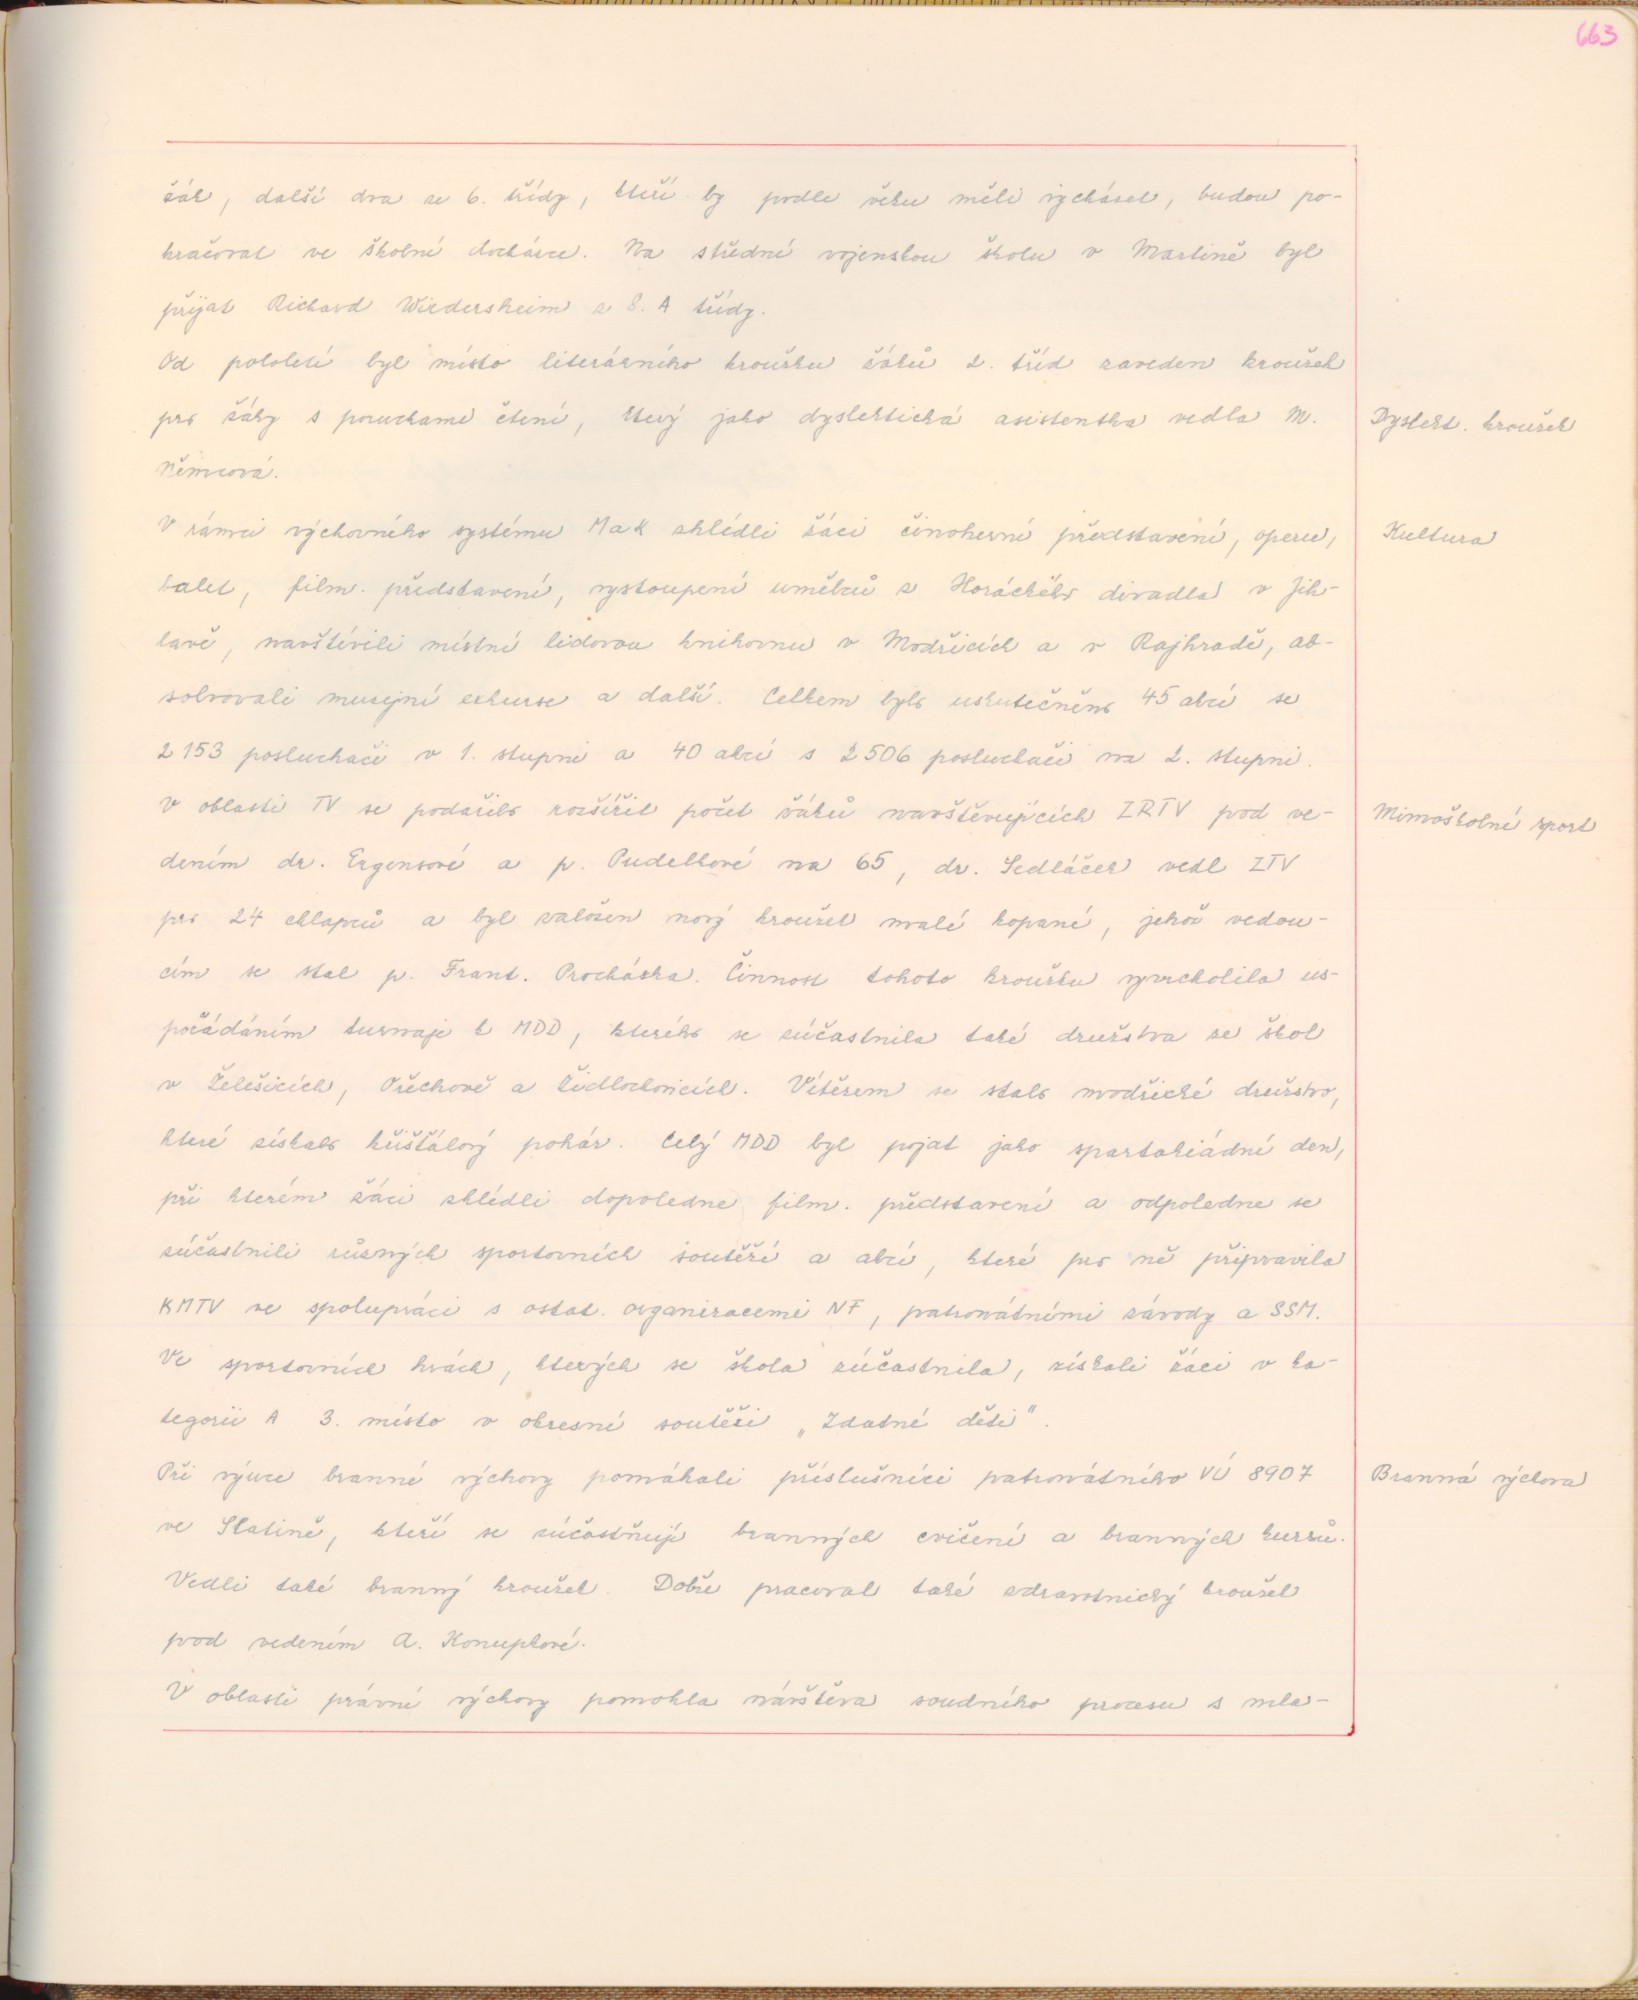 663
žák, další dva ze 6. třídy, kteří by podle věku měli vycházet, budou po-
kračovat ve školní docházce. Na střední vojenskou školu v Martině byl
přijat Richard Wiedersheim z 8. A třídy.
Od pololetí byl místo literárního kroužku žáků 2. tříd zaveden kroužek
pro žáky s poruchami čtení, který jako dyslektická asistentka vedla M.
Dyslekt. kroužek
Němcová.
V rámci výchovného systému MaK zhlédli žáci činoherní představení, operu,
Kultura
balet, film. představení, vystoupení umělců z Horáckého divadla v Jih-
lavě, navštívili místní lidovou knihovnu v Modřicích a v Rajhradě, ab-
solvovali musejní exkurse a další. Celkem bylo uskutečněno 45 akcí se
2 153 posluchači v 1. stupni a 40 akcí s 2 506 posluchači na 2. stupni.
V oblasti TV se podařilo rozšířit počet žáků navštěvujících ZRTV pod ve-
Mimoškolní sport
dením dr. Ergensové a p. Pudelkové na 65, dr. Sedláček vedl ZTV
pro 24 chlapců a byl založen nový kroužek malé kopané, jehož vedou-
cím se stal p. Frant. Procházka. Činnost tohoto kroužku vyvrcholila us-
pořádáním turnaje k MDD, kterého se zúčastnila také družstva ze škol
v Želešicích, Ořechově a Židlochovicích. Vítězem se stalo modřické družstvo,
které získalo křišťálový pohár. Celý MDD byl pojat jako spartakiádní den,
při kterém žáci zhlédli dopoledne film. představení a odpoledne se
zúčastnili různých sportovních soutěží a akcí, které pro ně připravila
KMTV ve spolupráci s ostat. organizacemi NF, patronátními závody a SSM.
Ve sportovních hrách, kterých se škola zúčastnila, získali žáci v ka-
tegorii A 3. místo v okresní soutěži „Zdatné děti".
Při výuce branné výchovy pomáhali příslušníci patronátního VÚ 8907
Branná výchova
ve Slatině, kteří se zúčastňují branných cvičení a branných kurzů.
Vedli také branný kroužek. Dobře pracoval také zdravotnický kroužek
pod vedením A. Konupkové.
V oblasti právní výchovy pomohla návštěva soudního procesu s mla-